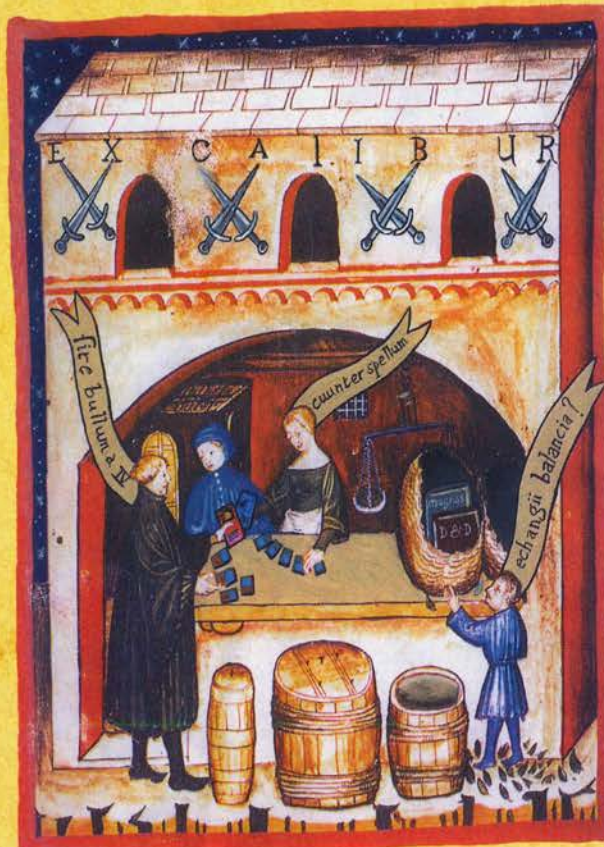 EXCALIBUR
fire bullum a IV
cuunter spellum
echangii balancia?
magnus
D&D